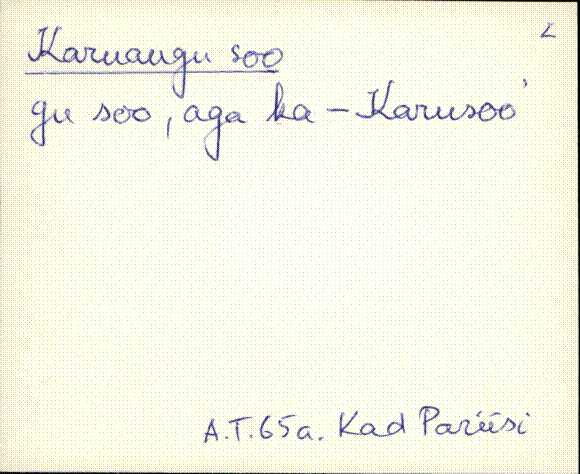 2
Karuaugu soo
gu soo, aga ka – Karusoo'
A.T. 65a. Kad Pariisi